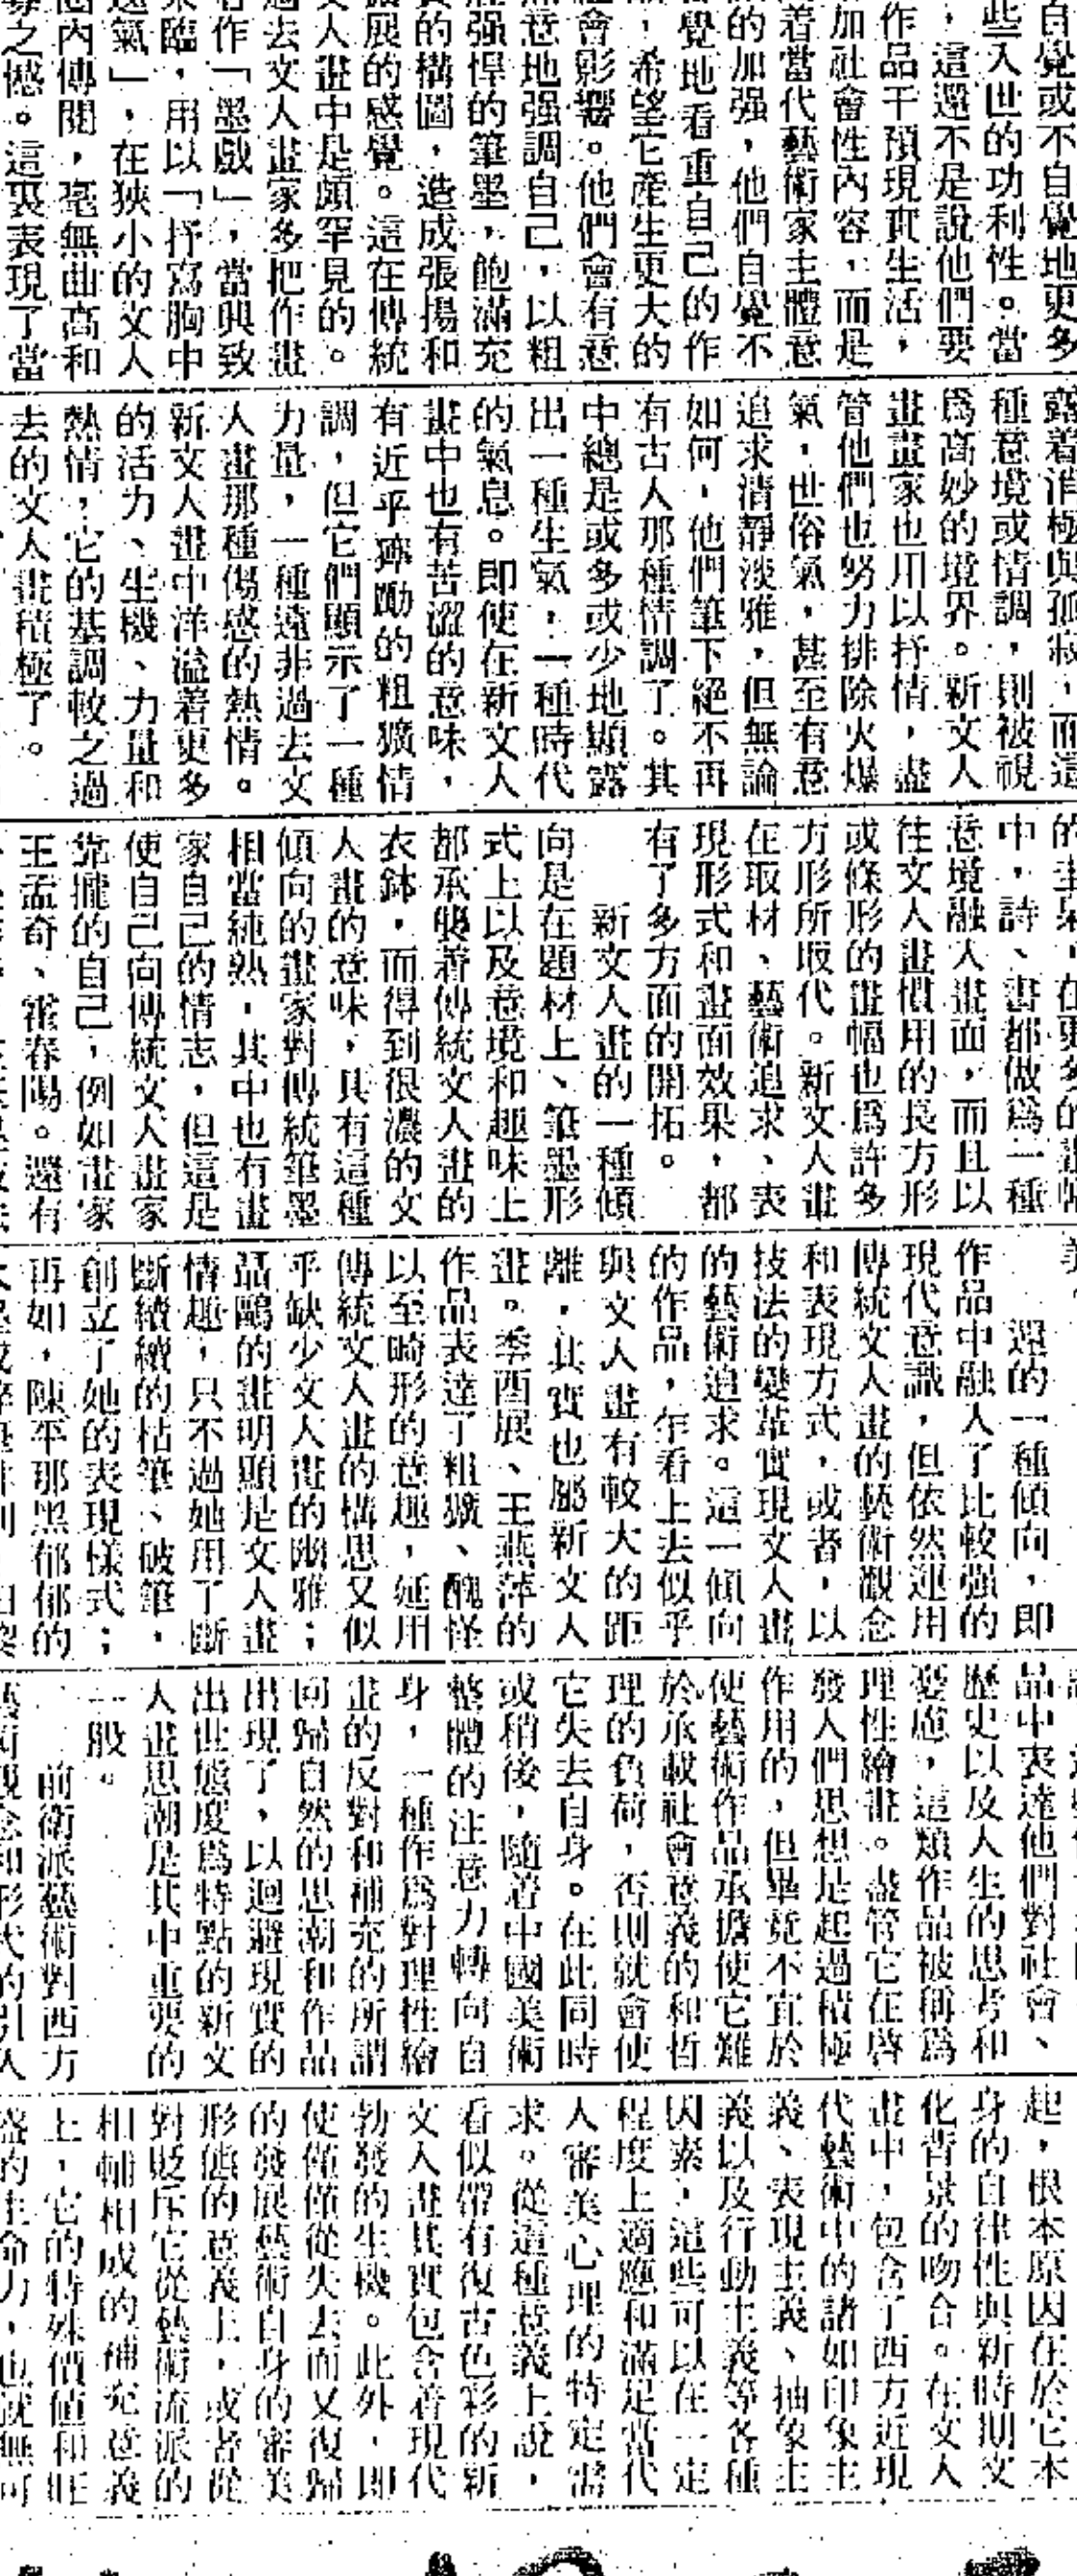 自覺或不自覺地更多
些入世的功利性。當
，這還不是說他們要
作品干預現實生活，
加社會性內容，而是
着當代藝術家主體意
的加强，他們自覺不
覺地看重自己的作
，希望它產生更大的
會影響。他們會有意
無意地强調自己，以粗
强悍的筆墨，飽滿充
的構圖，造成張揚和
展的感覺。這在傳統
人畫中是頗罕見的。
過去文人畫家多把作畫
作「墨戲」，當興致
來臨，用以「抒寫胸中
逸氣」，在狹小的文人
圈內傳閱，毫無曲高和
寡之憾。這裏表現了當
露着消極與孤寂，而這
種意境或情調，則被視
爲高妙的境界。新文人
畫畫家也用以抒情，盡
管他們也努力排除火爆
氣，世俗氣，甚至有意
追求清靜淡雅，但無論
如何，他們筆下絕不再
有古人那種情調了。其
中總是或多或少地顯露
出一種生氣，一種時代
的氣息。即使在新文人
畫中也有苦澀的意味，
有近乎躁動的粗獷情
調，但它們顯示了一種
力量，一種遠非過去文
人畫那種傷感的熱情。
新文人畫中洋溢着更多
的活力、生機、力量和
熱情，它的基調較之過
去的文人畫積極了。
在更多的畫幅
中，詩、書都做爲一種
意境融入畫面，而且以
往文人畫慣用的長方形
或條形的畫幅也爲許多
方形所取代。新文人畫
在取材、藝術追求、表
現形式和畫面效果，都
有了多方面的開拓。
新文人畫的一種傾
向是在題材上、筆墨形
式上以及意境和趣味上
都承襲着傳統文人畫的
衣鉢，而得到很濃的文
人畫的意味，具有這種
傾向的畫家對傳統筆墨
相當純熟，其中也有畫
家自己的情志，但這是
使自己向傳統文人畫家
靠攏的自己，例如畫家
王孟奇、霍春陽。還有
還的一種傾向，即
作品中融入了比較强的
現代意識，但依然運用
傳統文人畫的藝術觀念
和表現方式，或者，以
技法的變革實現文人畫
的藝術追求。這一傾向
的作品，乍看上去似乎
與文人畫有較大的距
離，其實也屬新文人
畫。季酉展、王燕萍的
作品表達了粗獷、醜怪
以至畸形的意趣，延用
傳統文人畫的構思又似
乎缺少文人畫的幽雅；
聶鷗的畫明顯是文人畫
情趣，只不過她用了斷
斷續續的枯筆、破筆，
創立了她的表現樣式；
再如，陳平那黑郁郁的
品中表達他們對社會、
歷史以及人生的思考和
憂慮，這類作品被稱爲
理性繪畫。盡管它在啓
發人們思想是起過積極
作用的，但畢竟不宜於
使藝術作品承擔使它難
於承載社會意義的和哲
理的負荷，否則就會使
它失去自身。在此同時
或稍後，隨着中國美術
整體的注意力轉向自
身，一種作爲對理性繪
畫的反對和補充的所謂
回歸自然的思潮和作品
出現了，以迴避現實的
出世態度爲特點的新文
人畫思潮是其中重要的
一股。
前衛派藝術對西方
藝術觀念和形式的引入
起，根本原因在於它本
身的自律性與新時期文
化背景的吻合。在文人
畫中，包含了西方近現
代藝術中的諸如印象主
義、表現主義、抽象主
義以及行動主義等各種
因素，這些可以在一定
程度上適應和滿足當代
人審美心理的特定需
求。從這種意義上說，
看似帶有復古色彩的新
文人畫其實包含着現代
勃發的生機。此外，即
使僅僅從失去而又復歸
的發展藝術自身的審美
形態的意義上，或者從
對貶斥它從藝術流派的
相輔相成的補充意義
上，它的特殊價值和旺
盛的生命力，也就無可